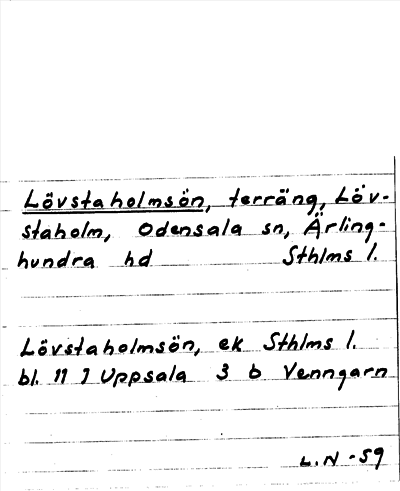 Lövstaholmsön, terräng, Löv-
staholm, Odensala sn, Ärling-
hundra hd Sthlms l.
Lövstaholmsön, ek Sthlms l.
bl. 11 I Uppsala 3 b Venngarn
L.N -59